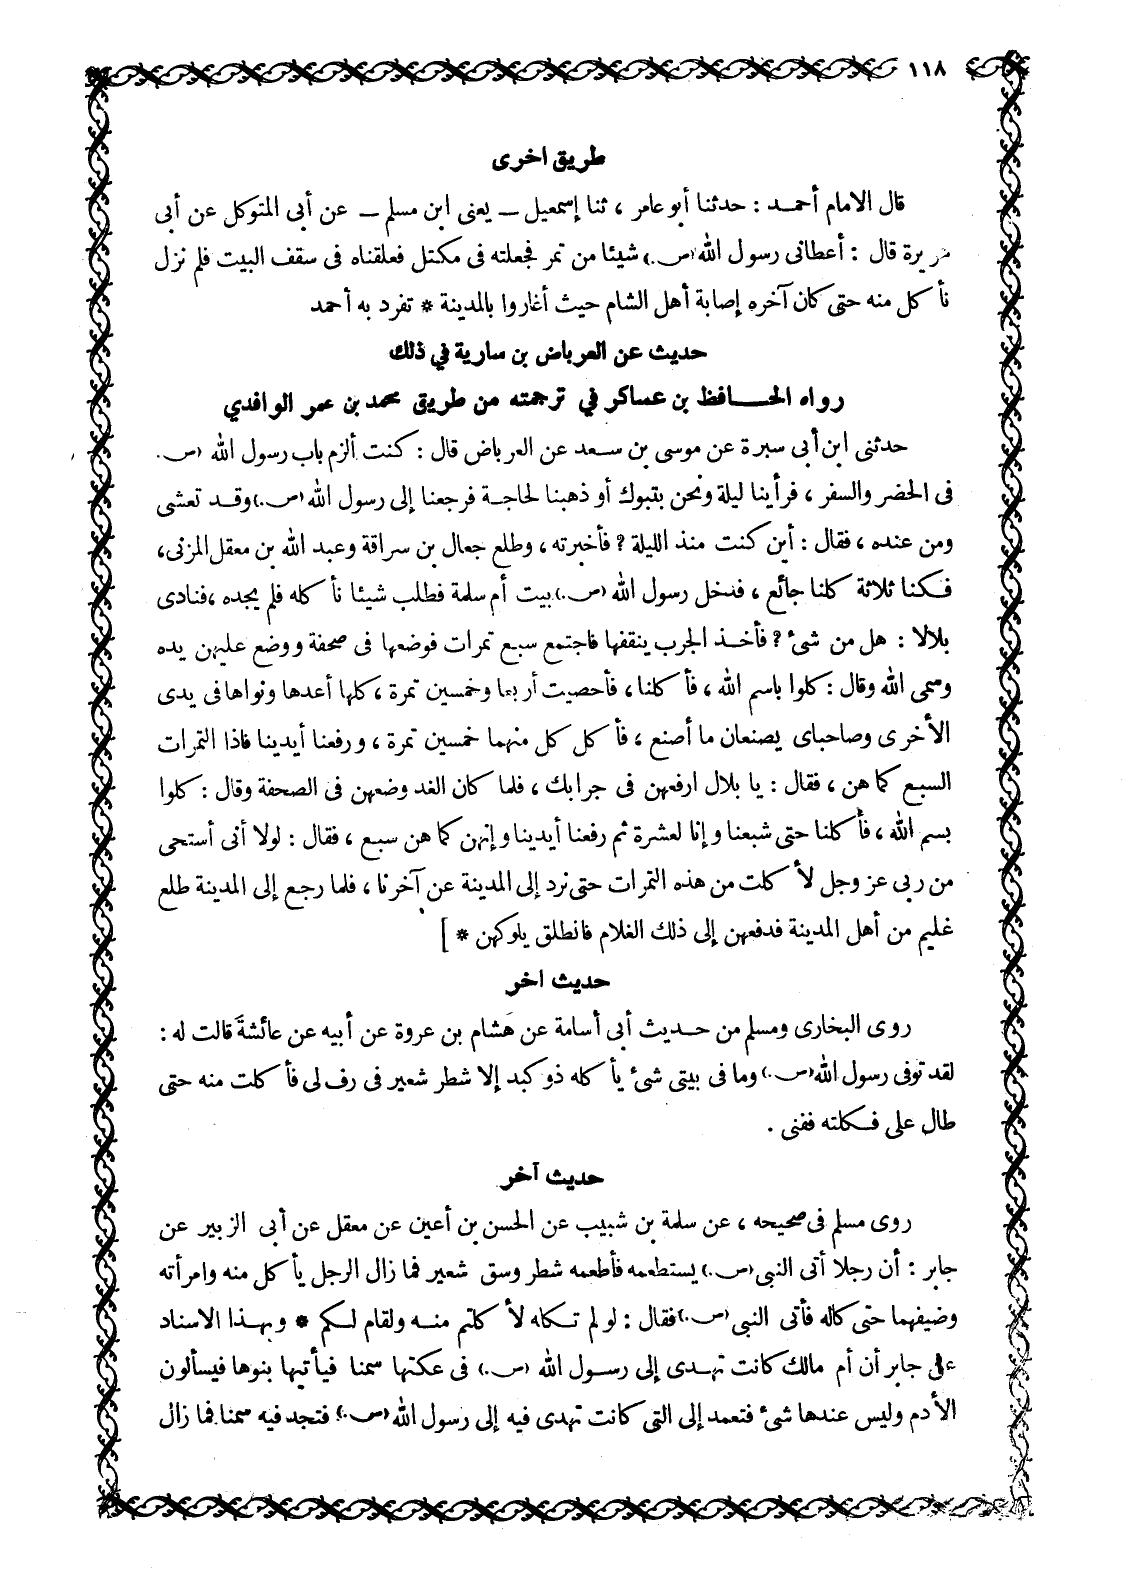 ١١٨
طريق اخرى
قال الامام أحمد : حدثنا أبو عامر ، ثنا إسمعيل ــ يعنى ابن مسلم ــ عن أبى المتوكل عن أبى
هريرة قال : أعطانى رسول الله (ص.) شيئا من تمر فجعلته فى مكتل فعلقناه فى سقف البيت فلم نزل
نأكل منه حتى كان آخره إصابة أهل الشام حيث أغاروا بالمدينة * تفرد به أحمد
حديث عن العرباض بن سارية في ذلك
رواه الحـافظ بن عساكر في ترجمته من طريق محمد بن عمر الوافدي
حدثنى ابن أبى سبرة عن موسى بن سـعد عن العرباض قال : كنت ألزم باب رسول الله (ص.
فى الحضر والسفر ، فرأينا ليلة ونحن بتبوك أو ذهبنا لحاجة فرجعنا إلى رسول الله (ص.) وقد تعشى
ومن عنده ، فقال : أين كنت منذ الليلة ؟ فأخبرته ، وطلع جعال بن سراقة وعبد الله بن معقل المزنى ،
فكنا ثلاثة كلنا جائع ، فدخل رسول الله (ص.) بيت أم سلمة فطلب شيئا نأكله فلم يجده ، فنادى
بلالا : هل من شىء ؟ فأخذ الجرب ينقفها فاجتمع سبع تمرات فوضعها فى صحفة ووضع عليهن يده
وسمى الله وقال : كلوا باسم الله ، فأكلنا ، فأحصيت أربعا وخمسين تمرة ، كلها أعدها ونواها فى يدى
الأخرى وصاحباى يصنعان ما أصنع ، فأكل كل منهما خمسين تمرة ، ورفعنا أيدينا فاذا التمرات
السبع كما هن ، فقال : يا بلال ارفعهن فى جرابك ، فلما كان الغد وضعهن فى الصحفة وقال : كلوا
بسم الله ، فأكلنا حتى شبعنا وإنا لعشرة ثم رفعنا أيدينا وإنهن كما هن سبع ، فقال : لولا أنى أستحى
من ربى عز وجل لأكلت من هذه التمرات حتى نرد إلى المدينة عن آخرنا ، فلما رجع إلى المدينة طلع
غليم من أهل المدينة فدفعهن إلى ذلك الغلام فانطلق يلوكهن * ]
حديث اخر
روى البخارى ومسلم من حـديث أبى أسامة عن هشام بن عروة عن أبيه عن عائشة قالت له :
لقد توفى رسول الله (ص.) وما فى بيتى شىء يأكله ذو كبد إلا شطر شعير فى رف لى فأكلت منه حتى
طال على فكلته ففنى .
حديث آخر
روى مسلم فى صحيحه ، عن سلمة بن شبيب عن الحسن بن أعين عن معقل عن أبى الزبير عن
جابر : أن رجلا أتى النبى (ص.) يستطعمه فأطعمه شطر وسق شعير فما زال الرجل يأكل منه وامرأته
وضيفهما حتى كاله فأتى النبى (ص.) فقال : لو لم تكله لأكلتم منه ولقام لكم * وبهذا الاسناد
عن جابر أن أم مالك كانت تهدى إلى رسول الله (ص.) فى عكتها سمنا فيأتيها بنوها فيسألون
الأدم وليس عندها شىء فتعمد إلى التى كانت تهدى فيه إلى رسول الله (ص.) فتجد فيه سمنا فما زال